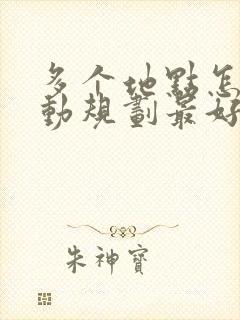 多个地點怎
動規劃最好
朱神寶